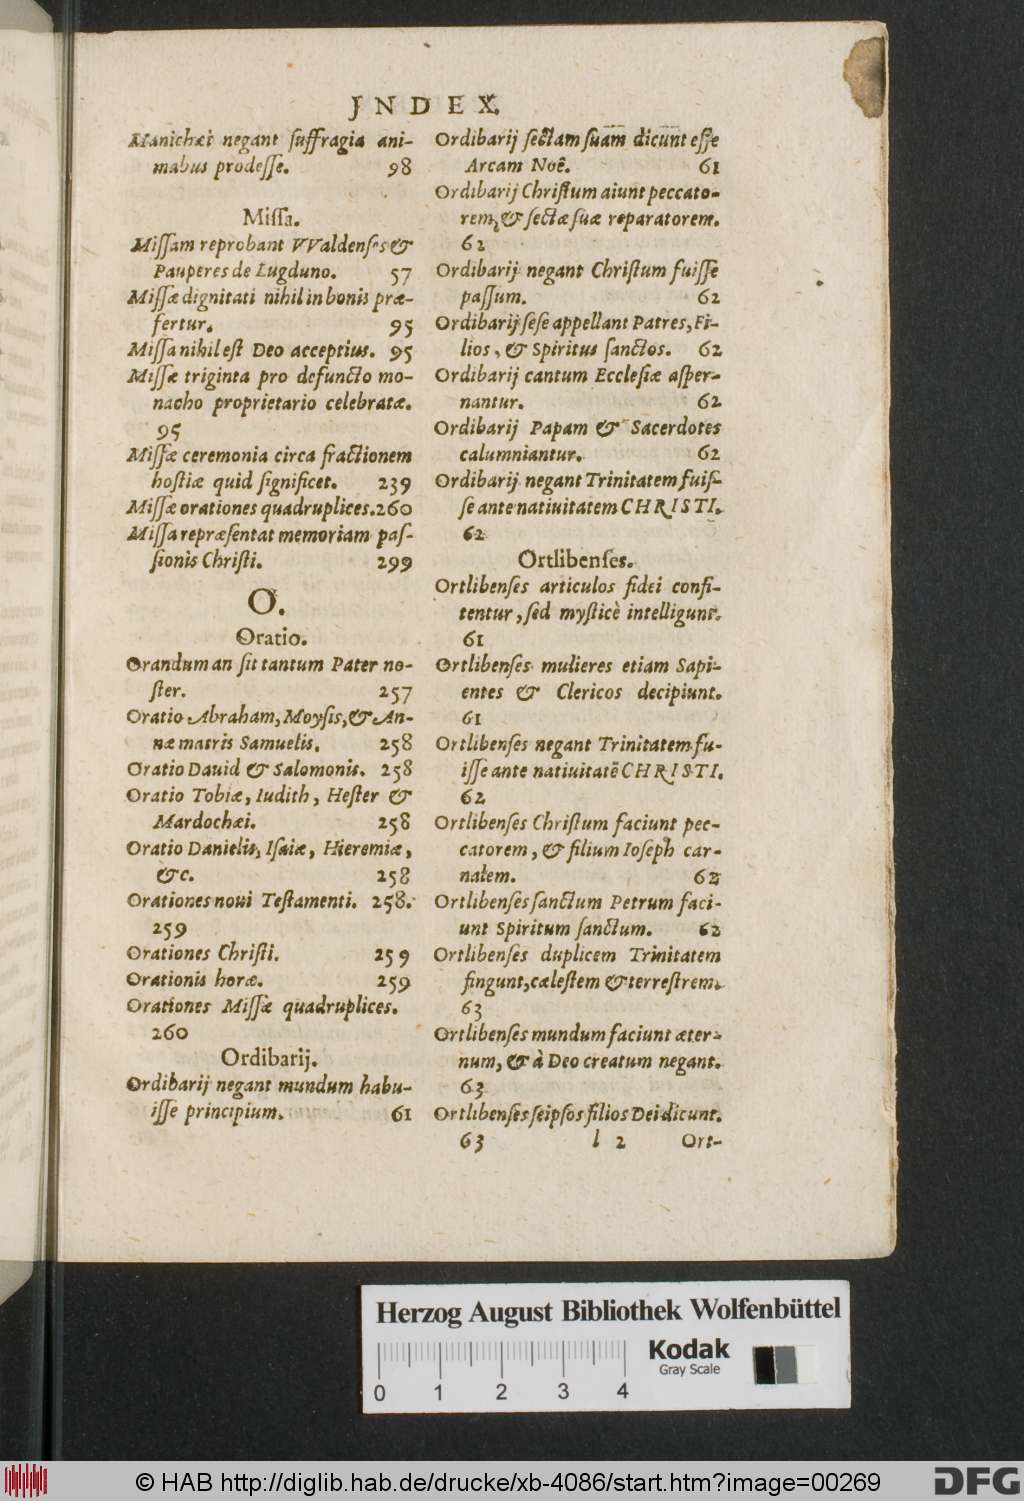 JNDEX.
Manichæi negant ſuffragia ani-
mabus prodeſſe. 98
Miſſa.
Miſſam reprobant VValdenſes &
Pauperes de Lugduno. 57
Miſſæ dignitati nihil in bonis præ-
fertur. 95
Miſſa nihil eſt Deo acceptius. 95
Miſſæ triginta pro defuncto mo-
nacho proprietario celebratæ.
95
Miſſæ ceremonia circa fractionem
hoſtiæ quid ſignificet. 239
Miſſæ orationes quadruplices. 260
Miſſa repræſentat memoriam paſ-
ſionis Chriſti. 299
O.
Oratio.
Orandum an ſit tantum Pater no-
ſter. 257
Oratio Abraham, Moyſis, & An-
næ matris Samuelis. 258
Oratio Dauid & Salomonis. 258
Oratio Tobiæ, Iudith, Heſter &
Mardochæi. 258
Oratio Danielis, Iſaiæ, Hieremiæ,
&c. 258
Orationes noui Teſtamenti. 258.
259
Orationes Chriſti. 259
Orationis horæ. 259
Orationes Miſſæ quadruplices.
260
Ordibarij.
Ordibarij negant mundum habu-
iſſe principium. 61
Ordibarij ſectam ſuam dicunt eſſe
Arcam Noê. 61
Ordibarij Chriſtum aiunt peccato-
rem, & ſectæ ſuæ reparatorem.
62
Ordibarij negant Chriſtum fuiſſe
paſſum. 62
Ordibarij ſeſe appellant Patres, Fi-
lios, & Spiritus ſanctos. 62
Ordibarij cantum Eccleſiæ aſper-
nantur. 62
Ordibarij Papam & Sacerdotes
calumniantur. 62
Ordibarij negant Trinitatem fuiſ-
ſe ante natiuitatem CHRISTI.
62
Ortlibenſes.
Ortlibenſes articulos fidei confi-
tentur, ſed myſticè intelligunt.
61
Ortlibenſes mulieres etiam Sapi-
entes & Clericos decipiunt.
61
Ortlibenſes negant Trinitatem fu-
iſſe ante natiuitatē CHRISTI.
62
Ortlibenſes Chriſtum faciunt pec-
catorem, & filium Ioſeph car-
nalem. 62
Ortlibenſes ſanctum Petrum faci-
unt Spiritum ſanctum. 62
Ortlibenſes duplicem Trinitatem
fingunt, cæleſtem & terreſtrem.
63
Ortlibenſes mundum faciunt æter-
num, & à Deo creatum negant.
63
Ortlibenſes ſeipſos filios Dei dicunt.
63
l 2 Ort-
Herzog August Bibliothek Wolfenbüttel
Kodak
Gray Scale
0 1 2 3 4
© HAB http://diglib.hab.de/drucke/xb-4086/start.htm?image=00269
DFG